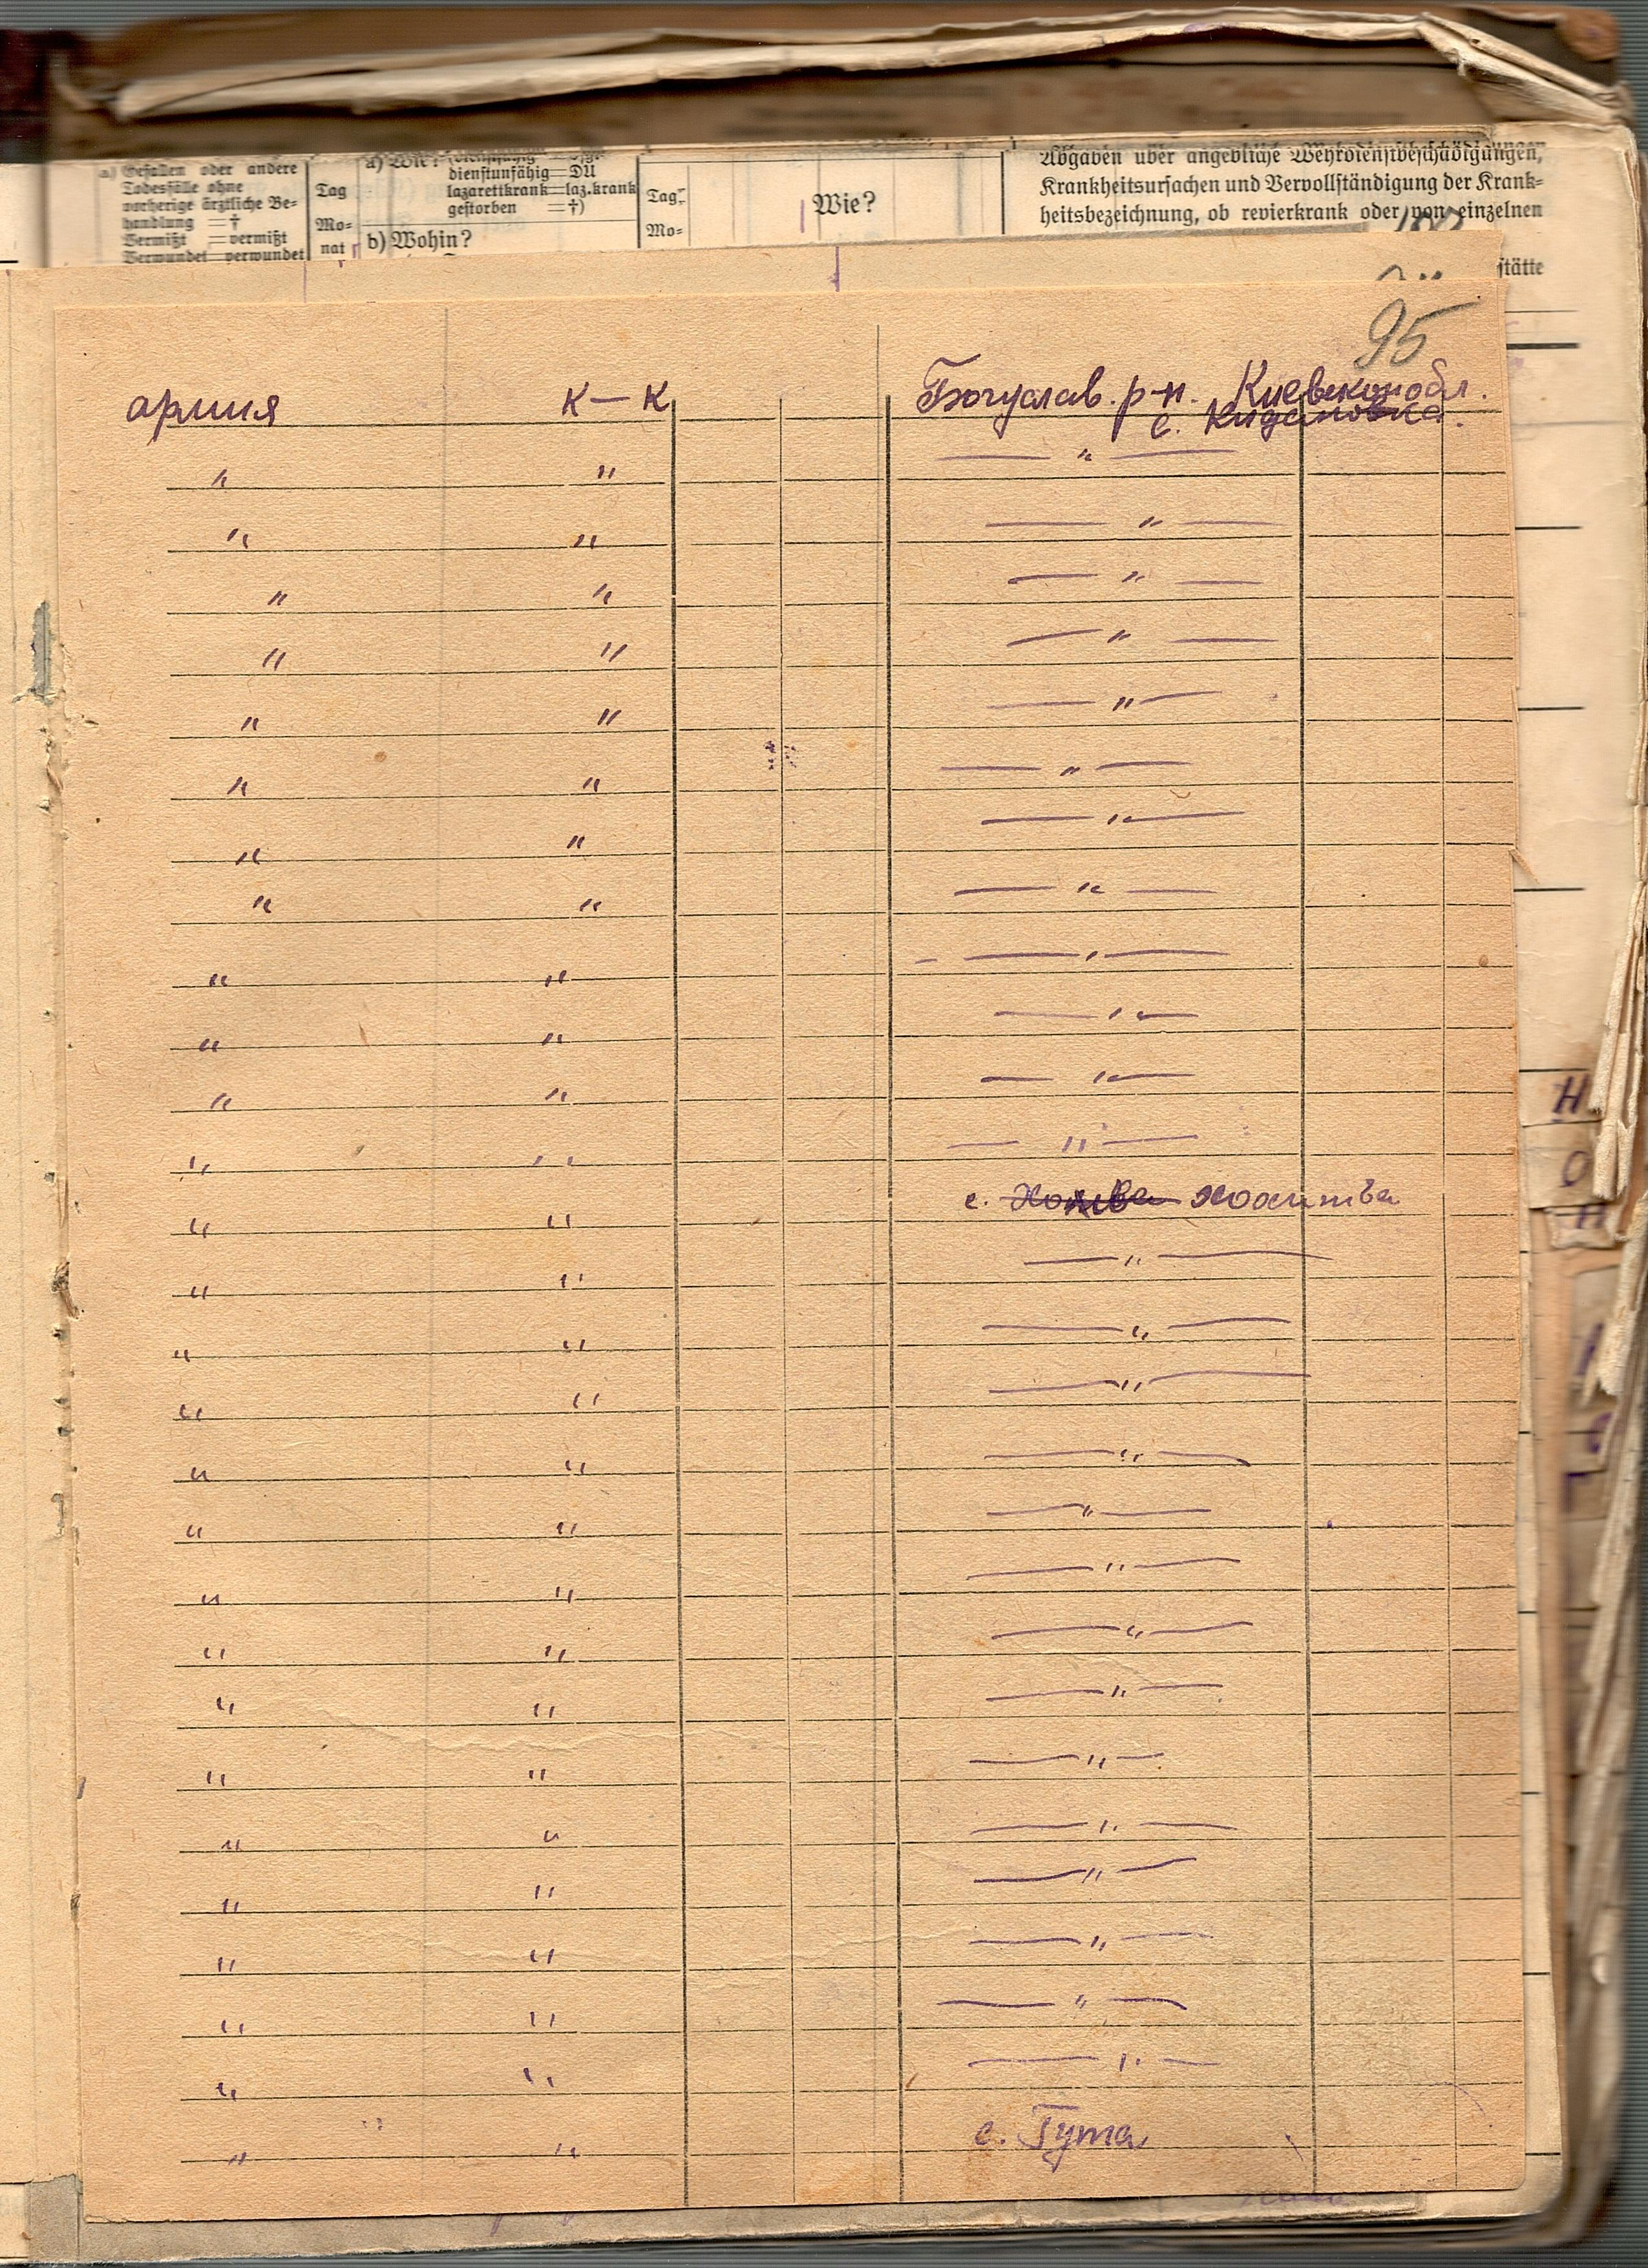 a) Gefallen oder andere
Todesfälle ohne
vorherige ärztliche Be-
handlung =†
Vermißt =vermißt
Verwundet verwundet
Tag
Mo-
nat
a) Wie?
dienstunfähig=DU
lazarettkrank=laz.krank
gestorben =†)
b) Wohin?
Tag
Mo-
Wie?
Abgaben über angebliche Wehrdienstbeschädigungen,
Krankheitsursachen und Vervollständigung der Krank-
heitsbezeichnung, ob revierkrank oder von einzelnen
stätte
95
армия к-к Богуслав. р-н. Киевскопобл.
с. Кидановка.
" " — " —
" " — " —
" " — " —
" " — " —
" " — " —
" " — " —
" " — " —
" " — " —
" " — " —
" " — " —
" " — " —
" " — " —
" " с. хохитва
" " — " —
" " — " —
" " — " —
" " — " —
" " — " —
" " — " —
" " — " —
" " — " —
" " — " —
" " — " —
" " — " —
" " — " —
" " — " —
" " — " —
" " с. Гута